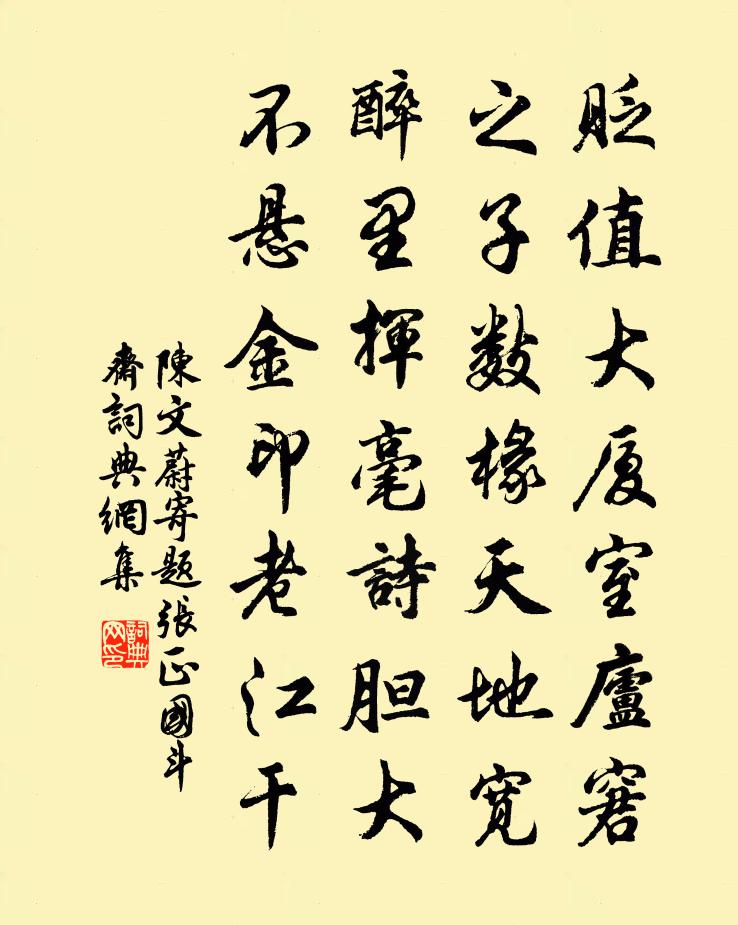 貶值大厦室廬窘
之子数椽天地宽
醉里揮毫詩胆大
不悬金印老江干
陳文蔚寄题張正國斗
齋詞典網集
詞典网印